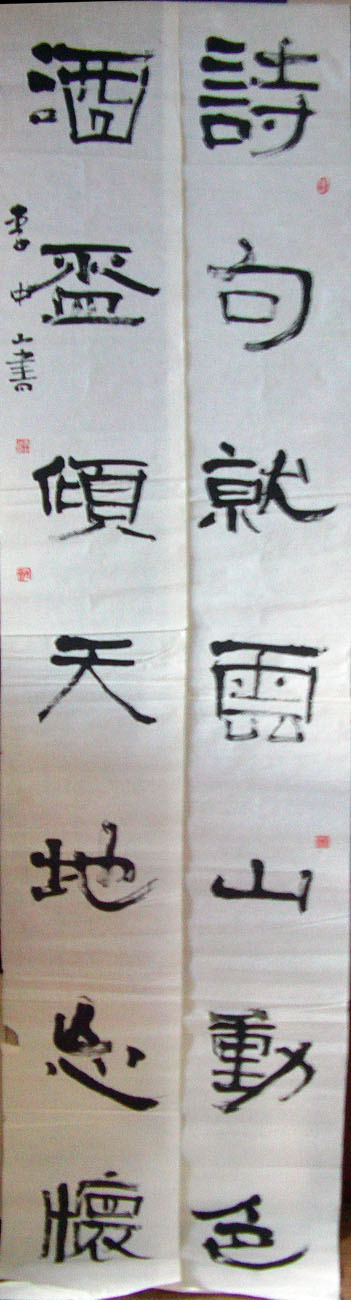 詩句就雲山動色
酒盃傾天地忘懷
李中山書